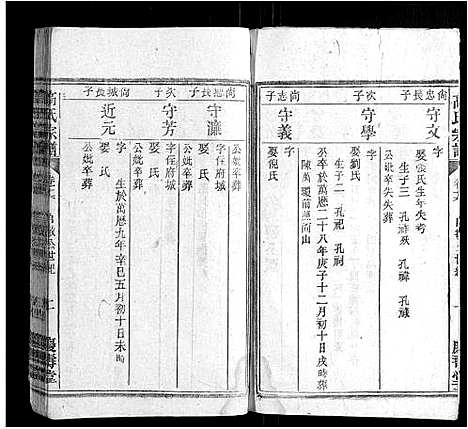 高氏宗譜
尙忠長子
守文
字
娶張氏生年失考
生子三
公妣卒失葬
次子
守學
字
娶劉氏
生子二 孔祀 孔祠
尙志子
守義
字
公卒於萬歷二十八年庚子十二月初十日戌時葬
娶倪氏
尙忠長子
守濂
字任府城
娶氏
公妣卒葬
次子
守芳
字任府城
娶氏
公妣卒葬
尙城長子
近元
字
生於萬歷九年辛巳五月初十日未時
娶氏
公妣卒葬
高氏宗譜
慶壽堂